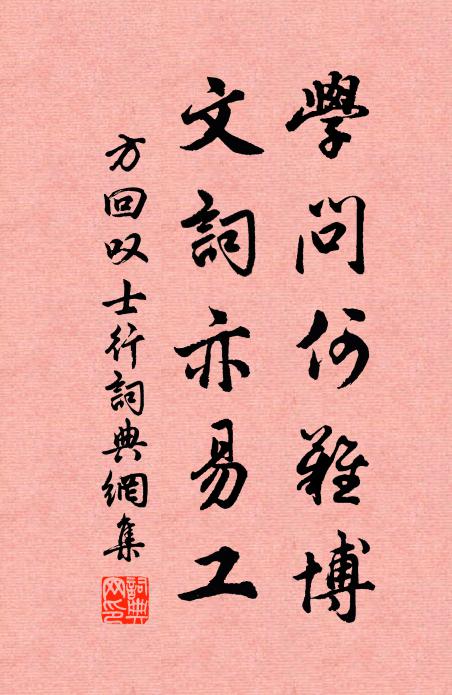 學問何難博
文詞亦易工
方回叹士行詞典網集
詞典网印